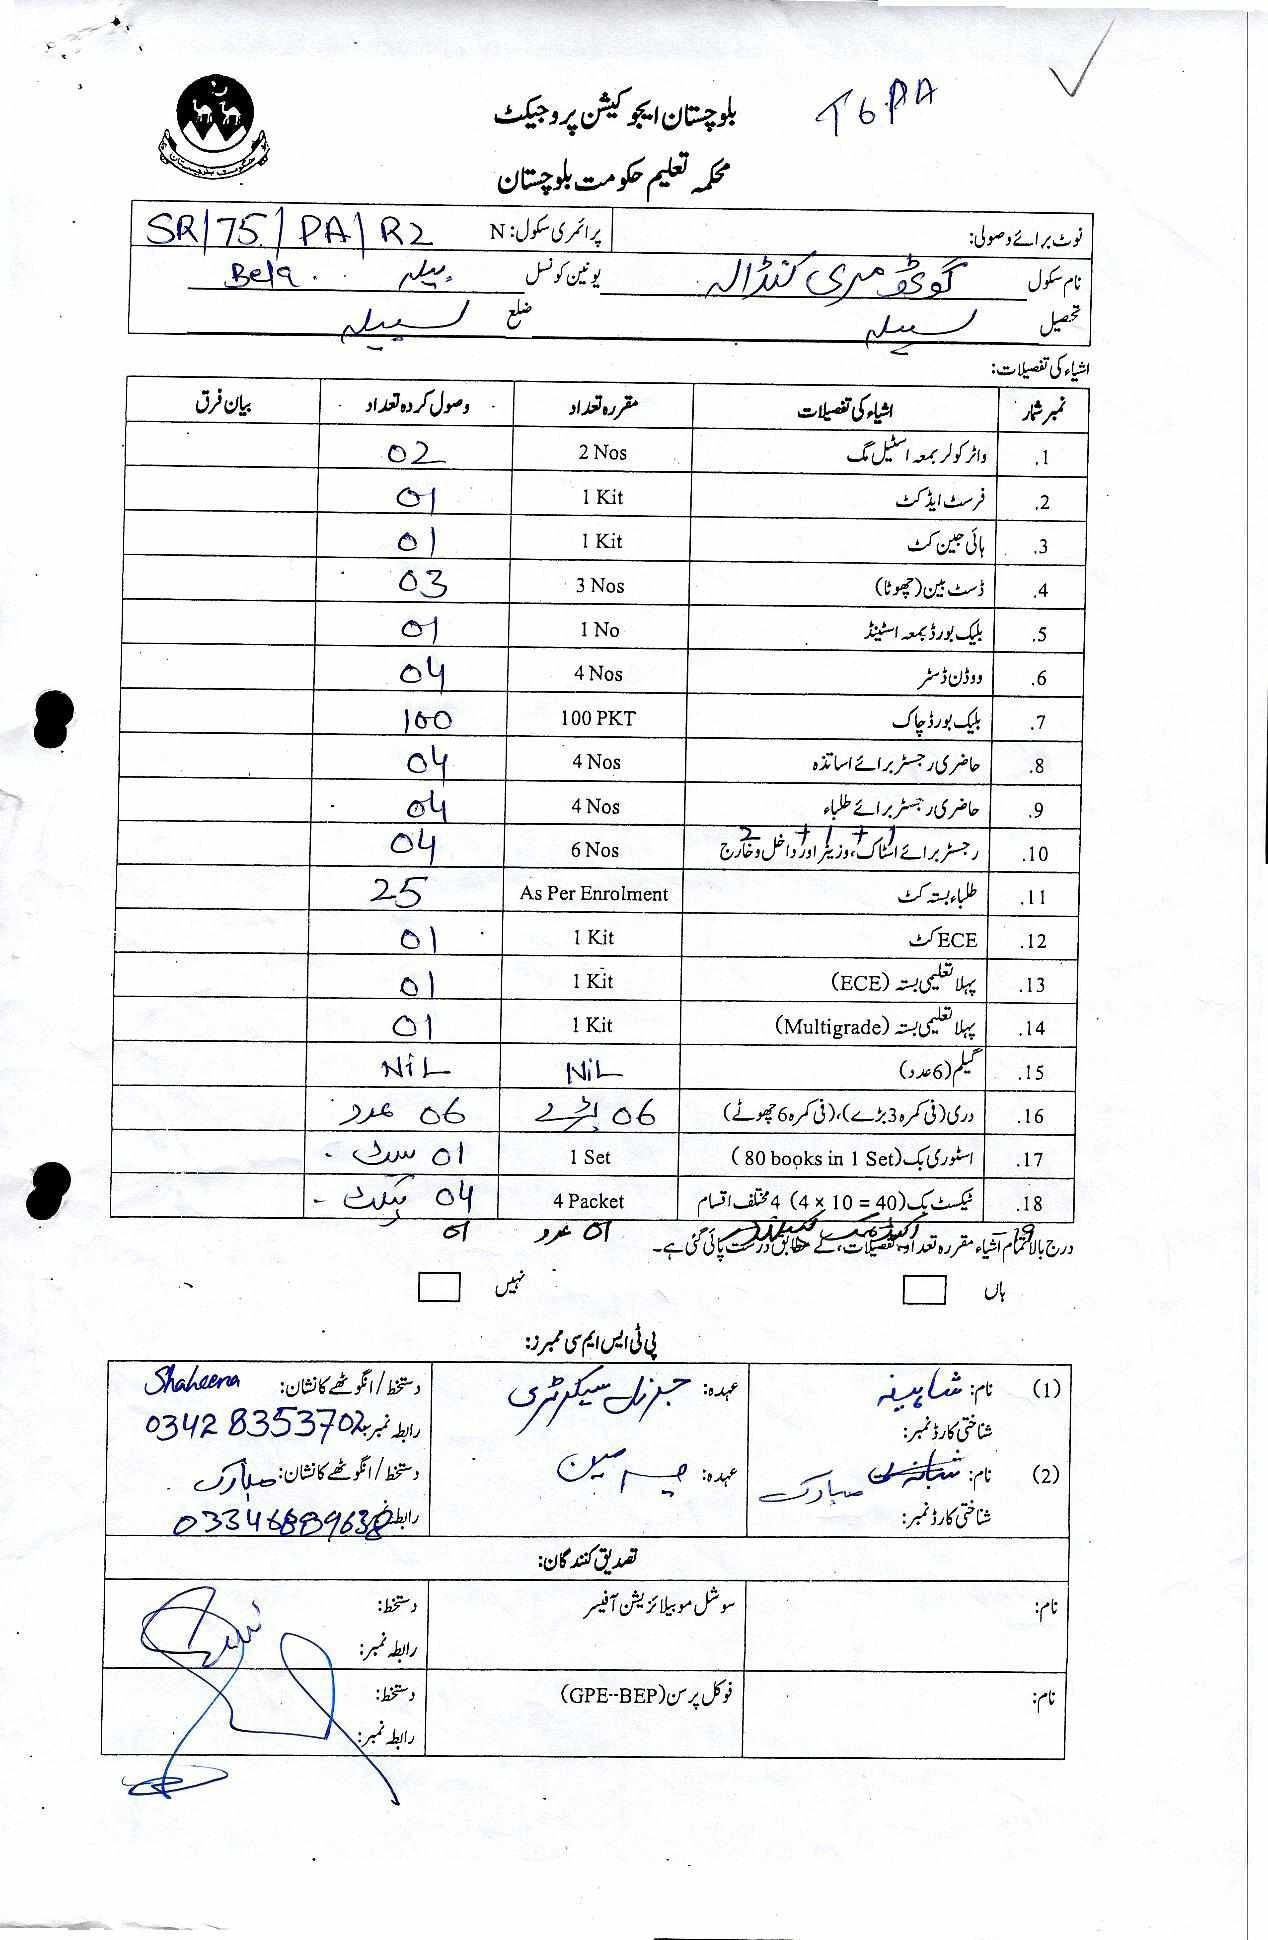 T6PA
بلوچستان ایجوکیشن پروجیکٹ
محکمہ تعلیم حکومت بلوچستان
نوٹ برائے وصولی: پرائمری سکول: N SR/75/PA/R2
نام سکول گوٹھ مری کنڈالہ یونین کونسل بیلہ Bela
تحصیل لسبیلہ ضلع لسبیلہ
اشیاء کی تفصیلات:
نمبر شمار اشیاء کی تفصیلات مقررہ تعداد وصول کردہ تعداد بیان فرق
1. واٹر کولر بمعہ اسٹیل مگ 2 Nos 02
2. فرسٹ ایڈ کٹ 1 Kit 01
3. ہائی جین کٹ 1 Kit 01
4. ڈسٹ بین (چھوٹا) 3 Nos 03
5. بلیک بورڈ بمعہ اسٹینڈ 1 No 01
6. ووڈن ڈسٹر 4 Nos 04
7. بلیک بورڈ چاک 100 PKT 100
8. حاضری رجسٹر برائے اساتذہ 4 Nos 04
9. حاضری رجسٹر برائے طلباء 4 Nos 04
2 + 1 + 1
10. رجسٹر برائے اسٹاک، وزیٹر اور داخل و خارج 6 Nos 04
11. طلباء بستہ کٹ As Per Enrolment 25
12. ECE کٹ 1 Kit 01
13. پہلا تعلیمی بستہ (ECE) 1 Kit 01
14. پہلا تعلیمی بستہ (Multigrade) 1 Kit 01
15. گیلم (6 عدد) NiL NiL
16. دری (فی کمرہ 3 بڑے)، (فی کمرہ 6 چھوٹے) 06 بڑے 06 عدد
17. اسٹوری بک (80 books in 1 Set) 1 Set 01 سیٹ
18. ٹیکسٹ بک (4 × 10 = 40) 4 مختلف اقسام 4 Packet 04 پیکٹ
19 01 عدد 01
درج بالا تمام اشیاء مقررہ تعداد اور تفصیلات کے مطابق درست پائی گئی ہے۔
ہاں نہیں
پی ٹی ایس ایم سی ممبرز:
(1) نام: شاہینہ عہدہ: جنرل سیکرٹری دستخط/انگوٹھے کا نشان: Shaheena
شناختی کارڈ نمبر: رابطہ نمبر: 0342 8353702
(2) نام: مبارک عہدہ: چیرمین دستخط/انگوٹھے کا نشان: مبارک
شناختی کارڈ نمبر: رابطہ نمبر:
تصدیق کنندگان:
نام: سوشل موبیلائزیشن آفیسر دستخط:
رابطہ نمبر:
نام: فوکل پرسن (GPE--BEP) دستخط:
رابطہ نمبر: